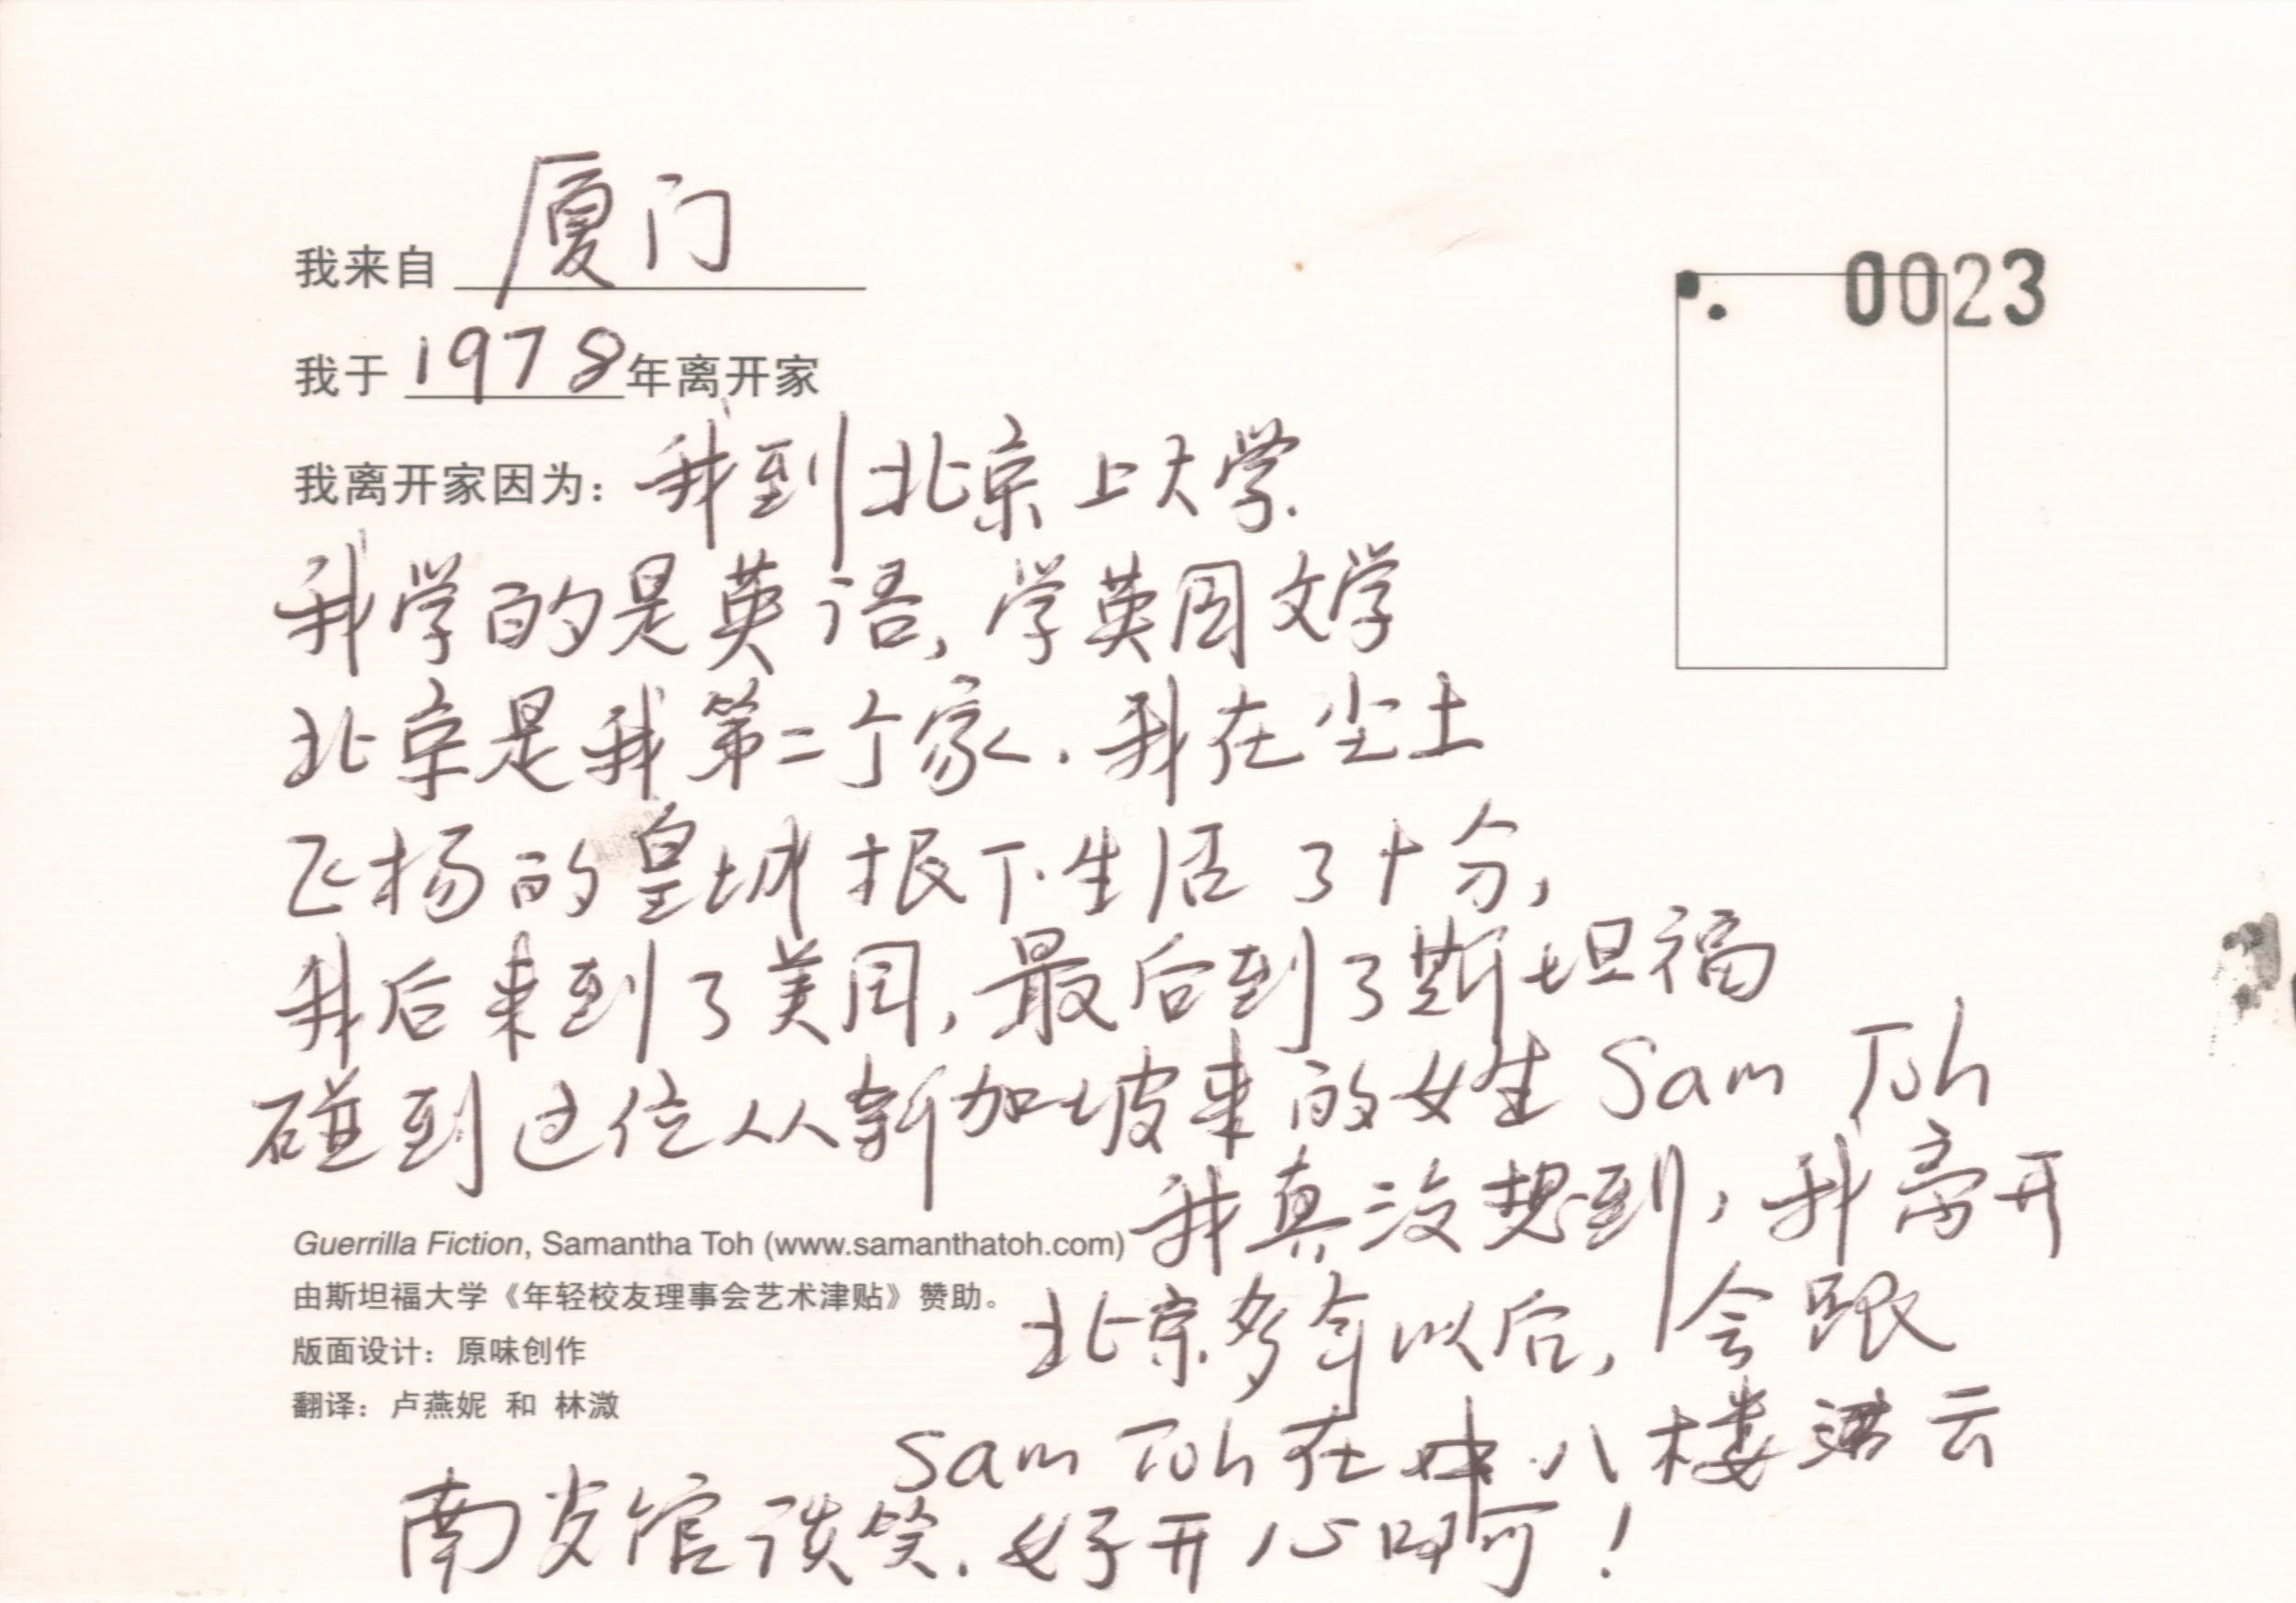 我来自 厦门
0023
我于 1978 年离开家
我离开家因为: 我到北京上大学.
我学的是英语, 学英国文学
北京是我第二个家. 我在尘土
飞杨的皇城根下生活了十分,
我后来到了美国, 最后到了斯坦福
碰到这位从新加坡来的女生 Sam Toh
我真没想到, 我离开
Guerrilla Fiction, Samantha Toh (www.samanthatoh.com)
由斯坦福大学《年轻校友理事会艺术津贴》赞助。
北京多年以后, 会跟
版面设计: 原味创作
翻译: 卢燕妮 和 林溦
Sam Toh 在 八楼 云
南 馆谈笑. 好开心啊!